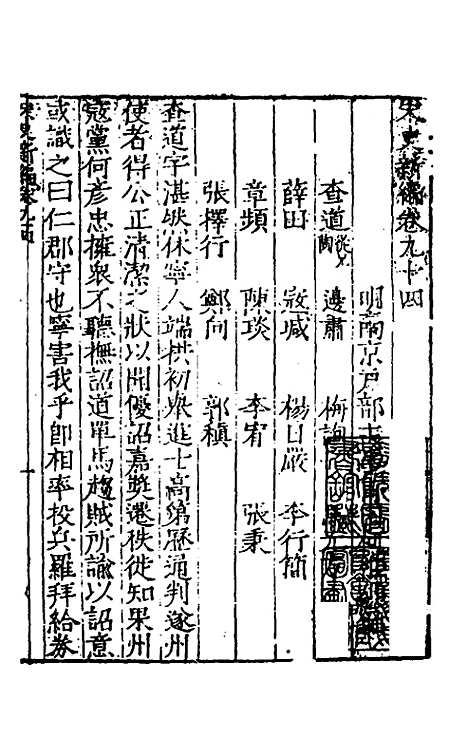 宋史新編卷九十四
明南京戶部主
查道 從兄陶 邊肅 梅詢
薛田 寇瑊 楊日嚴 李行簡
章頻 陳琰 李宥 張秉
張擇行 鄭向 郭稹
查道字湛然休寧人端拱初舉進士高第歷通判遂州
使者得公正清潔之狀以聞優詔嘉奬遷秩徙知果州
寇黨何彥忠擁衆不聽撫詔道單馬趨賊所諭以詔意
或識之曰仁郡守也寧害我乎卽相率投兵羅拜給券
宋史新編卷九十四